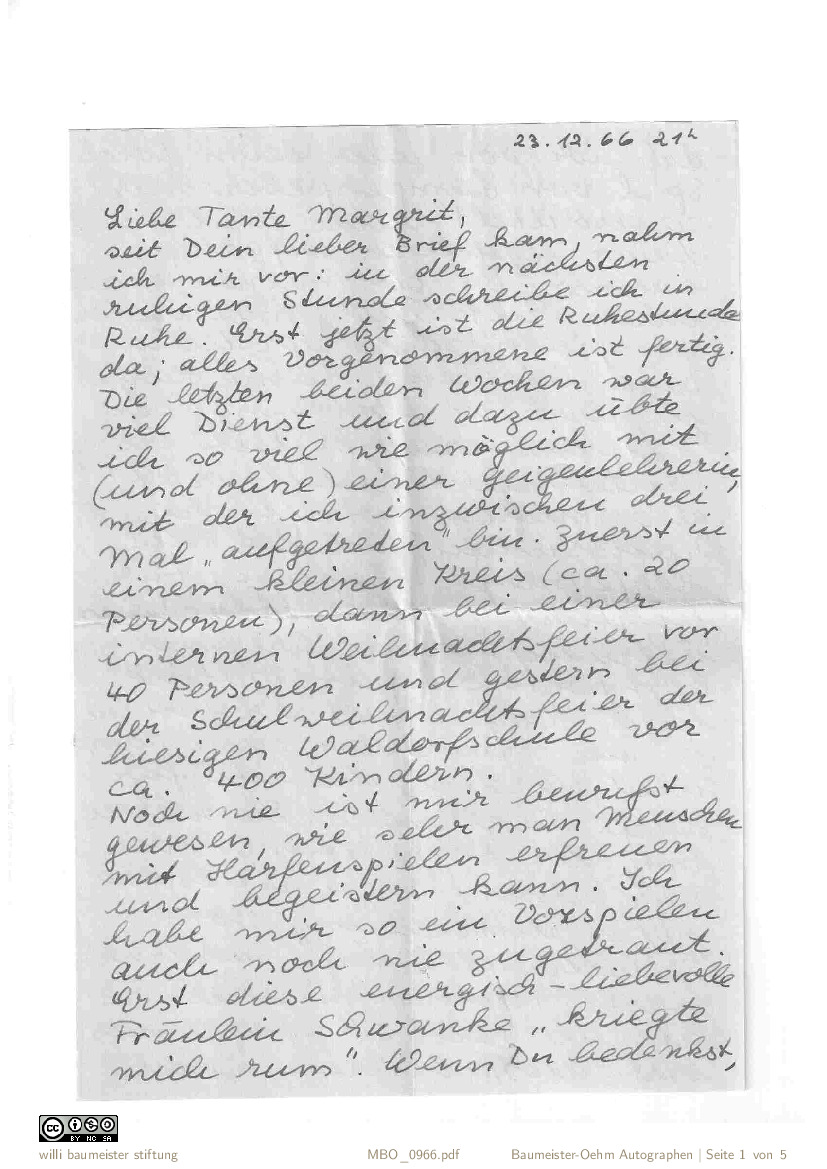 23.12.66 21h
Liebe Tante Margrit,
seit Dein lieber Brief kam, nahm
ich mir vor: in der nächsten
ruhigen Stunde schreibe ich in
Ruhe. Erst jetzt ist die Ruhestunde
da; alles Vorgenommene ist fertig.
Die letzten beiden Wochen war
viel Dienst und dazu übte
ich so viel wie möglich mit
(und ohne) einer Geigenlehrerin,
mit der ich inzwischen drei
Mal „aufgetreten" bin. Zuerst in
einem kleinen Kreis (ca. 20
Personen), dann bei einer
internen Weihnachtsfeier vor
40 Personen und gestern bei
der Schulweihnachtsfeier der
hiesigen Waldorfschule vor
ca. 400 Kindern.
Noch nie ist mir bewußt
gewesen, wie sehr man Menschen
mit Harfenspielen erfreuen
und begeistern kann. Ich
habe mir so ein Vorspielen
auch noch nie zugetraut.
Erst diese energisch-liebevolle
Fräulein Schwanke „kriegte
mich rum". Wenn Du bedenkst,
CC BY NC SA
willi baumeister stiftung
MBO_0966.pdf
Baumeister-Oehm Autographen | Seite 1 von 5